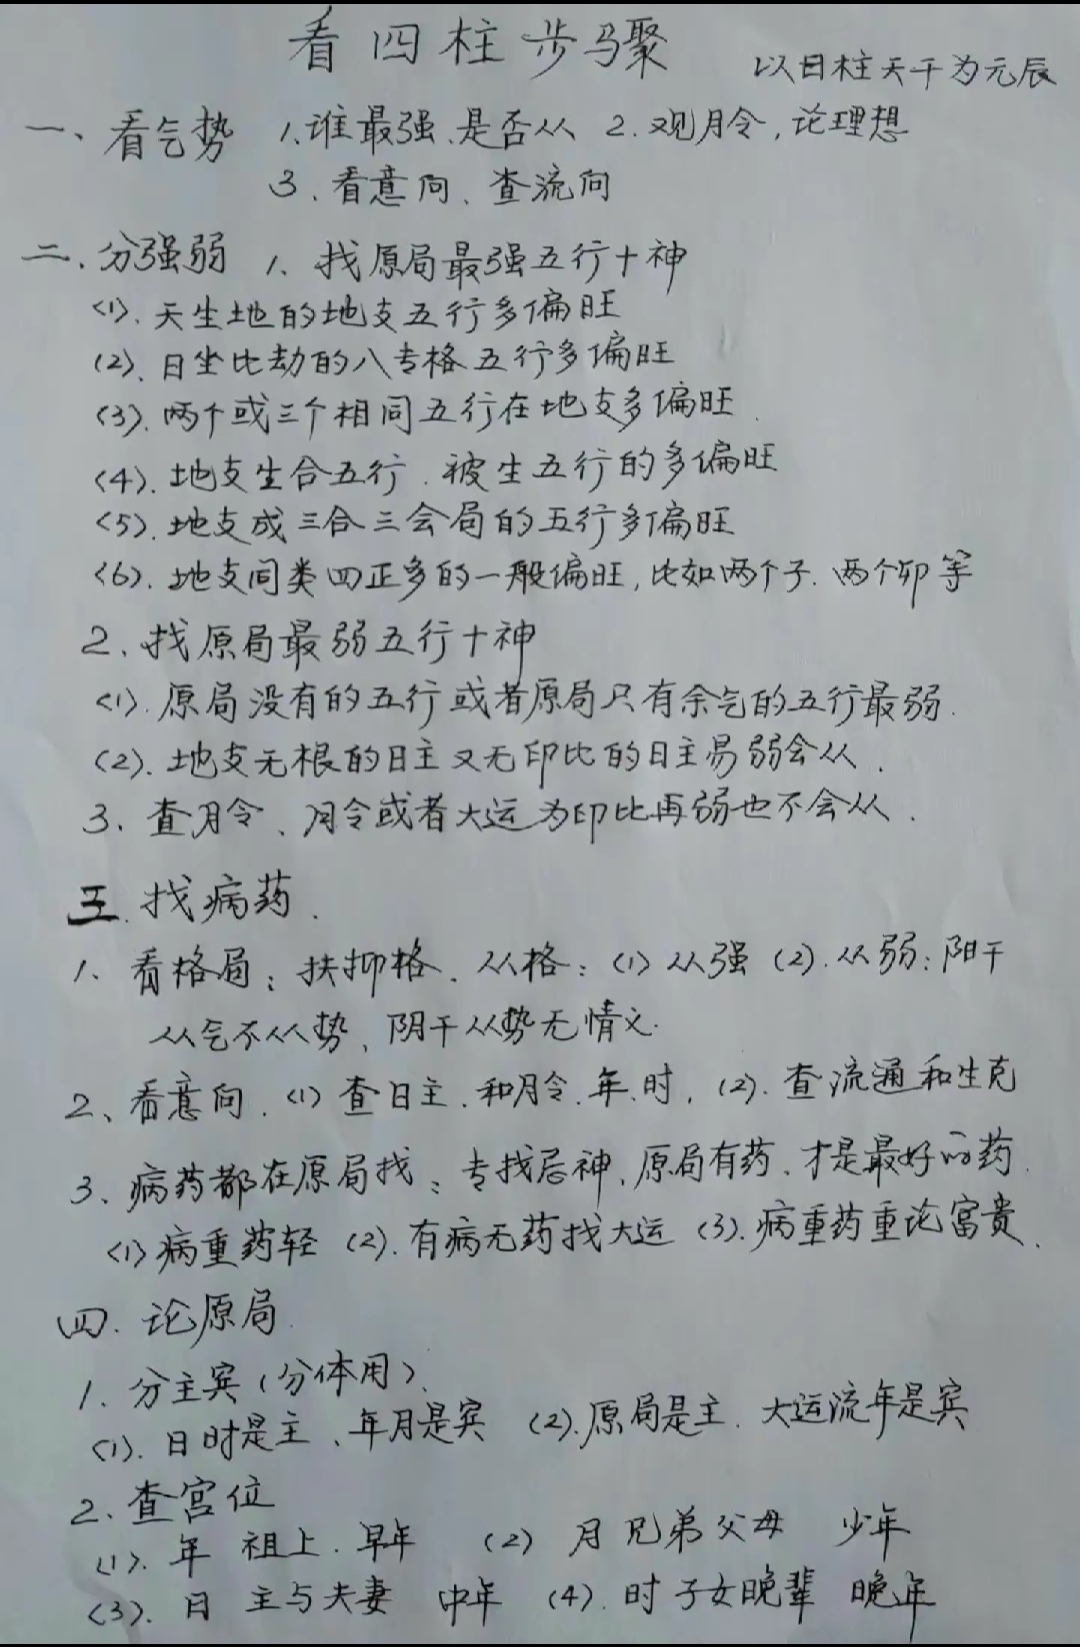 看四柱步骤
以日柱天干为元辰
一、看气势 1.谁最强、是否从 2.观月令,论理想
3.看意向、查流向
二.分强弱 1、找原局最强五行十神
(1).天生地的地支五行多偏旺
(2)、日坐比劫的八专格五行多偏旺
(3).两个或三个相同五行在地支多偏旺.
(4).地支生合五行.被生五行的多偏旺
(5).地支成三合三会局的五行多偏旺
(6).地支同类四正多的一般偏旺,比如两个子.两个卯等
2、找原局最弱五行十神
(1).原局没有的五行或者原局只有余气的五行最弱.
(2).地支无根的日主又无印比的日主易弱会从.
3、查月令、月令或者大运为印比再弱也不会从.
三.找病药.
1、看格局:扶抑格.从格:(1)从强(2).从弱:阳干
从气不从势、阴干从势无情义.
2、看意向.(1)查日主.和月令.年.时,(2).查流通和生克
3、病药都在原局找:专找忌神,原局有药.才是最好的药.
(1)病重药轻(2).有病无药找大运(3).病重药重论富贵.
四.论原局.
1.分主宾(分体用).
(1).日时是主、年月是宾 (2).原局是主.大运流年是宾
2.查宫位
(1).年 祖上.早年 (2)月 兄弟父母 少年
(3).日 主与夫妻 中年 (4).时 子女晚辈 晚年